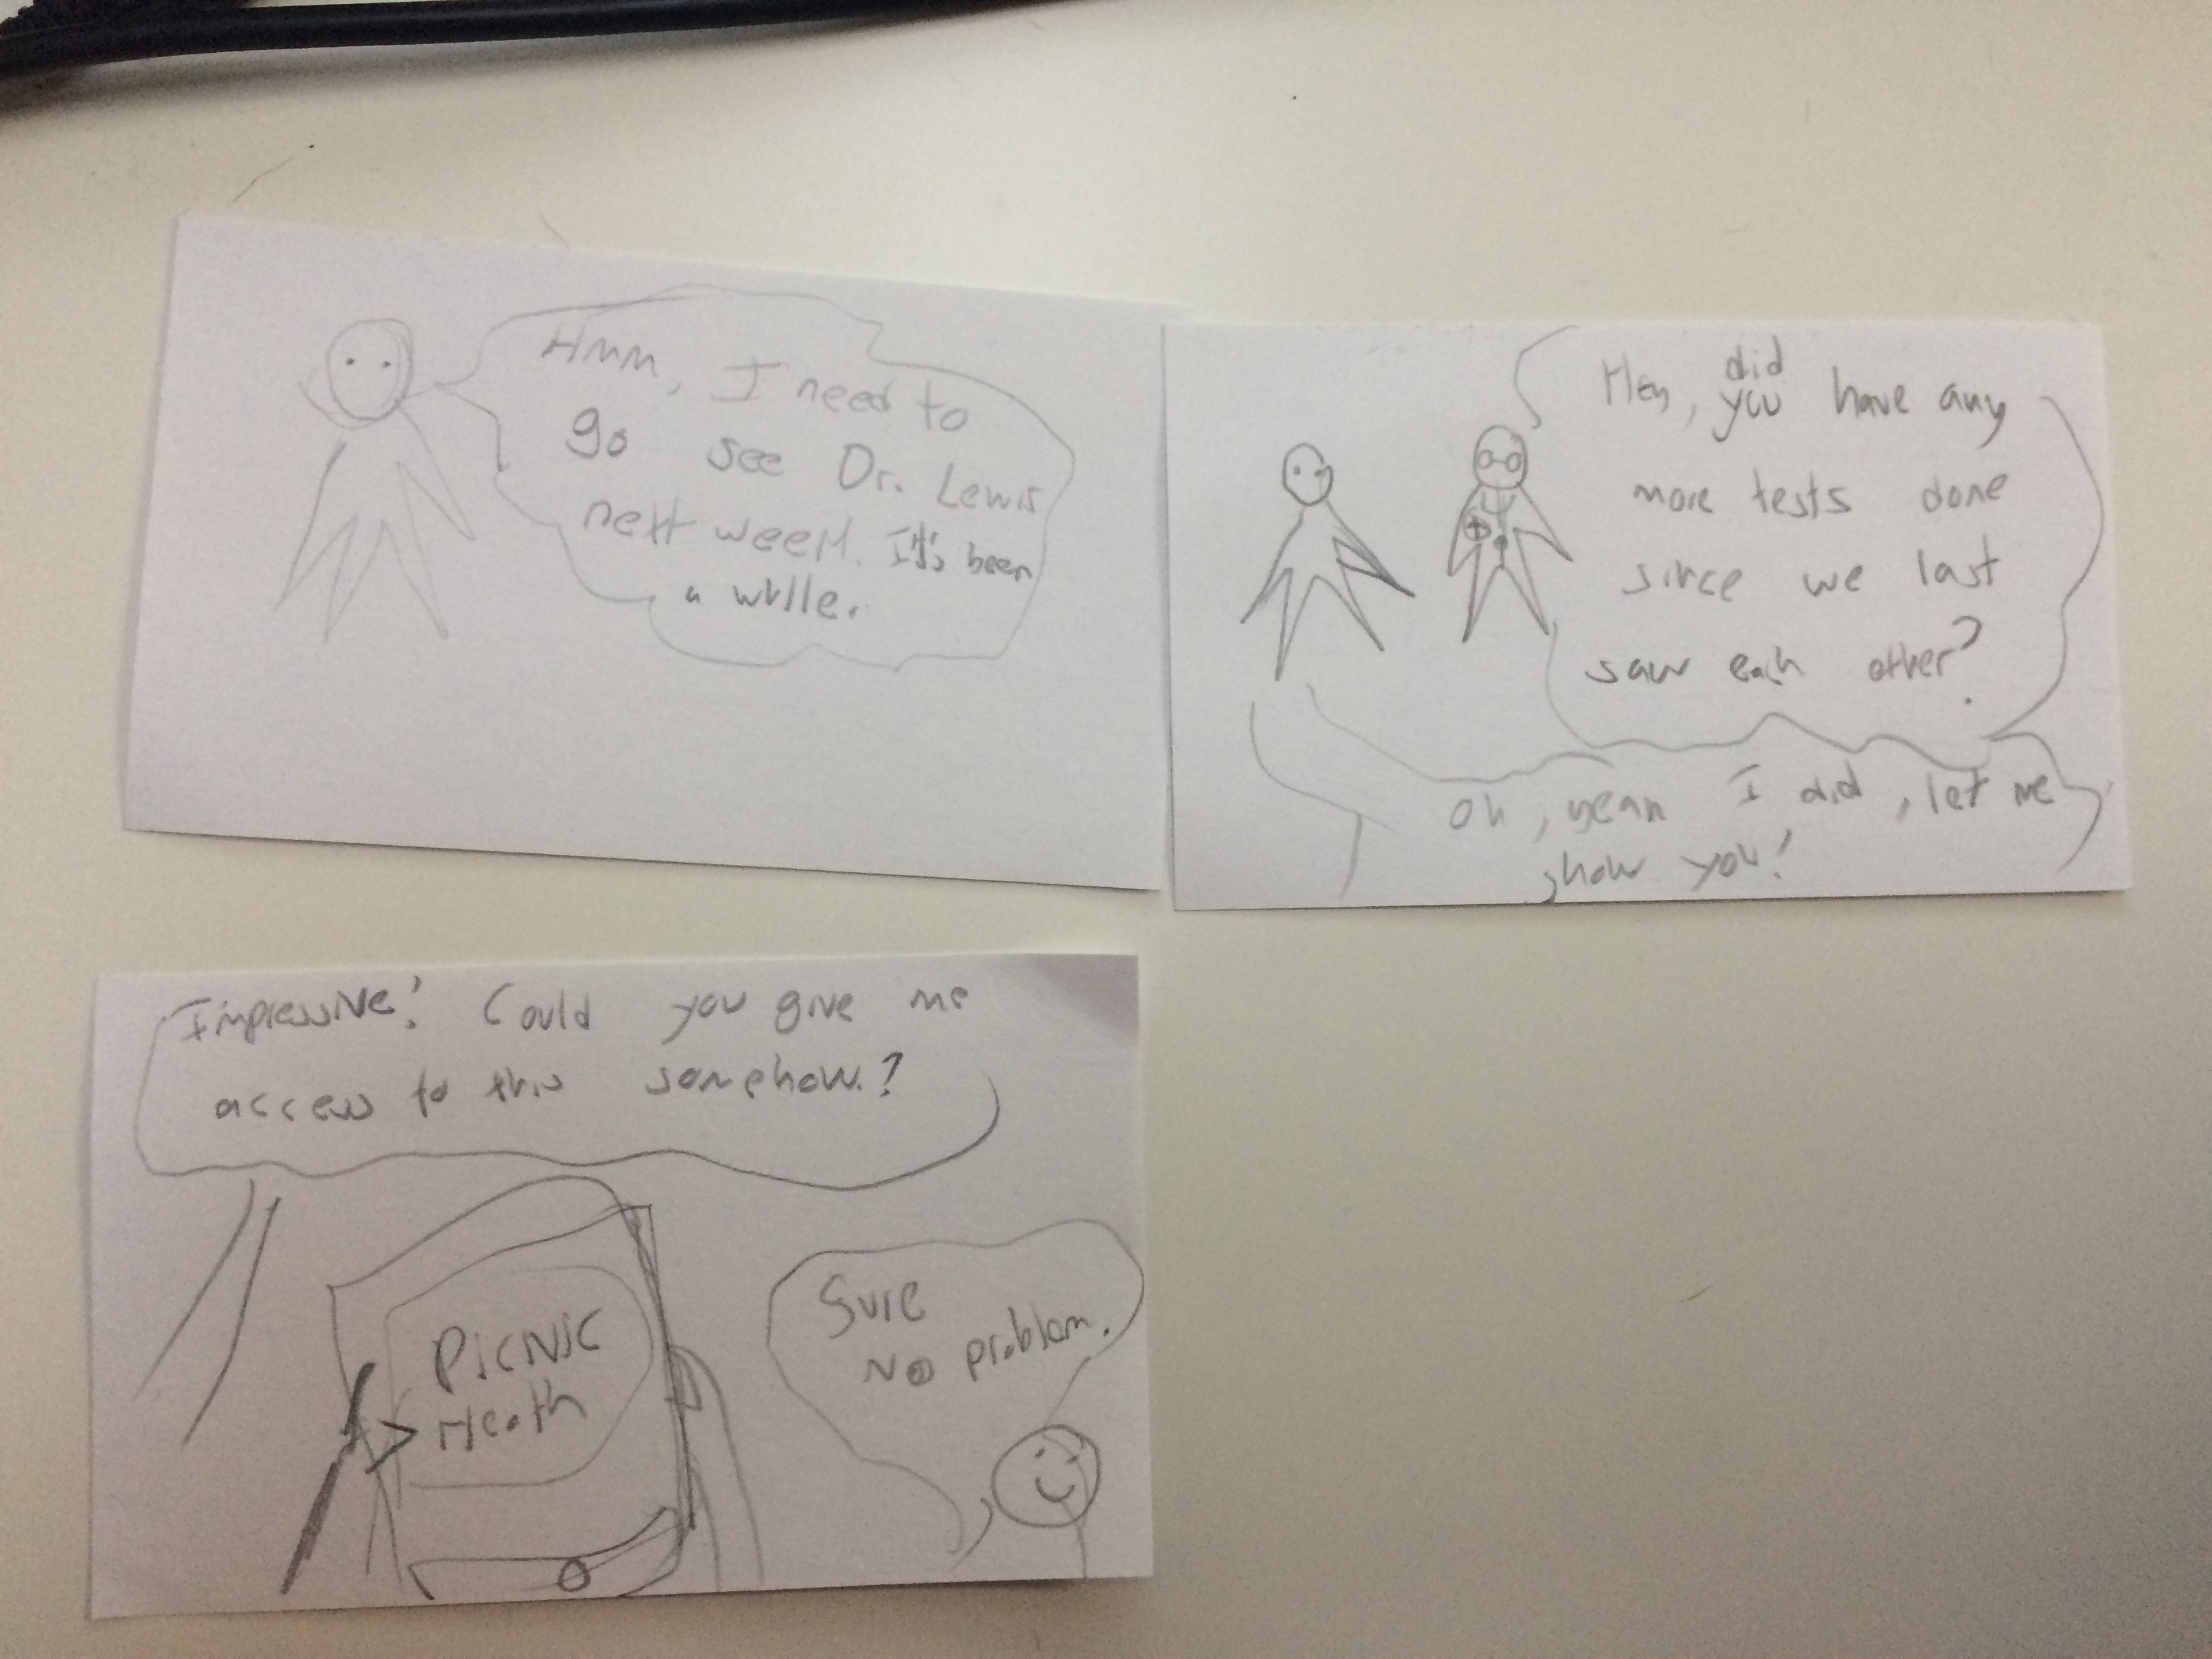 Hmm, I need to
go see Dr. Lewis
next week. It's been
a while.
Hey, did
you have any
more tests done
since we last
saw each other?
Oh, yeah I did, let me
show you!
Impressive! Could you give me
access to this somehow?
PICNIC
Heath
Sure
No problem.